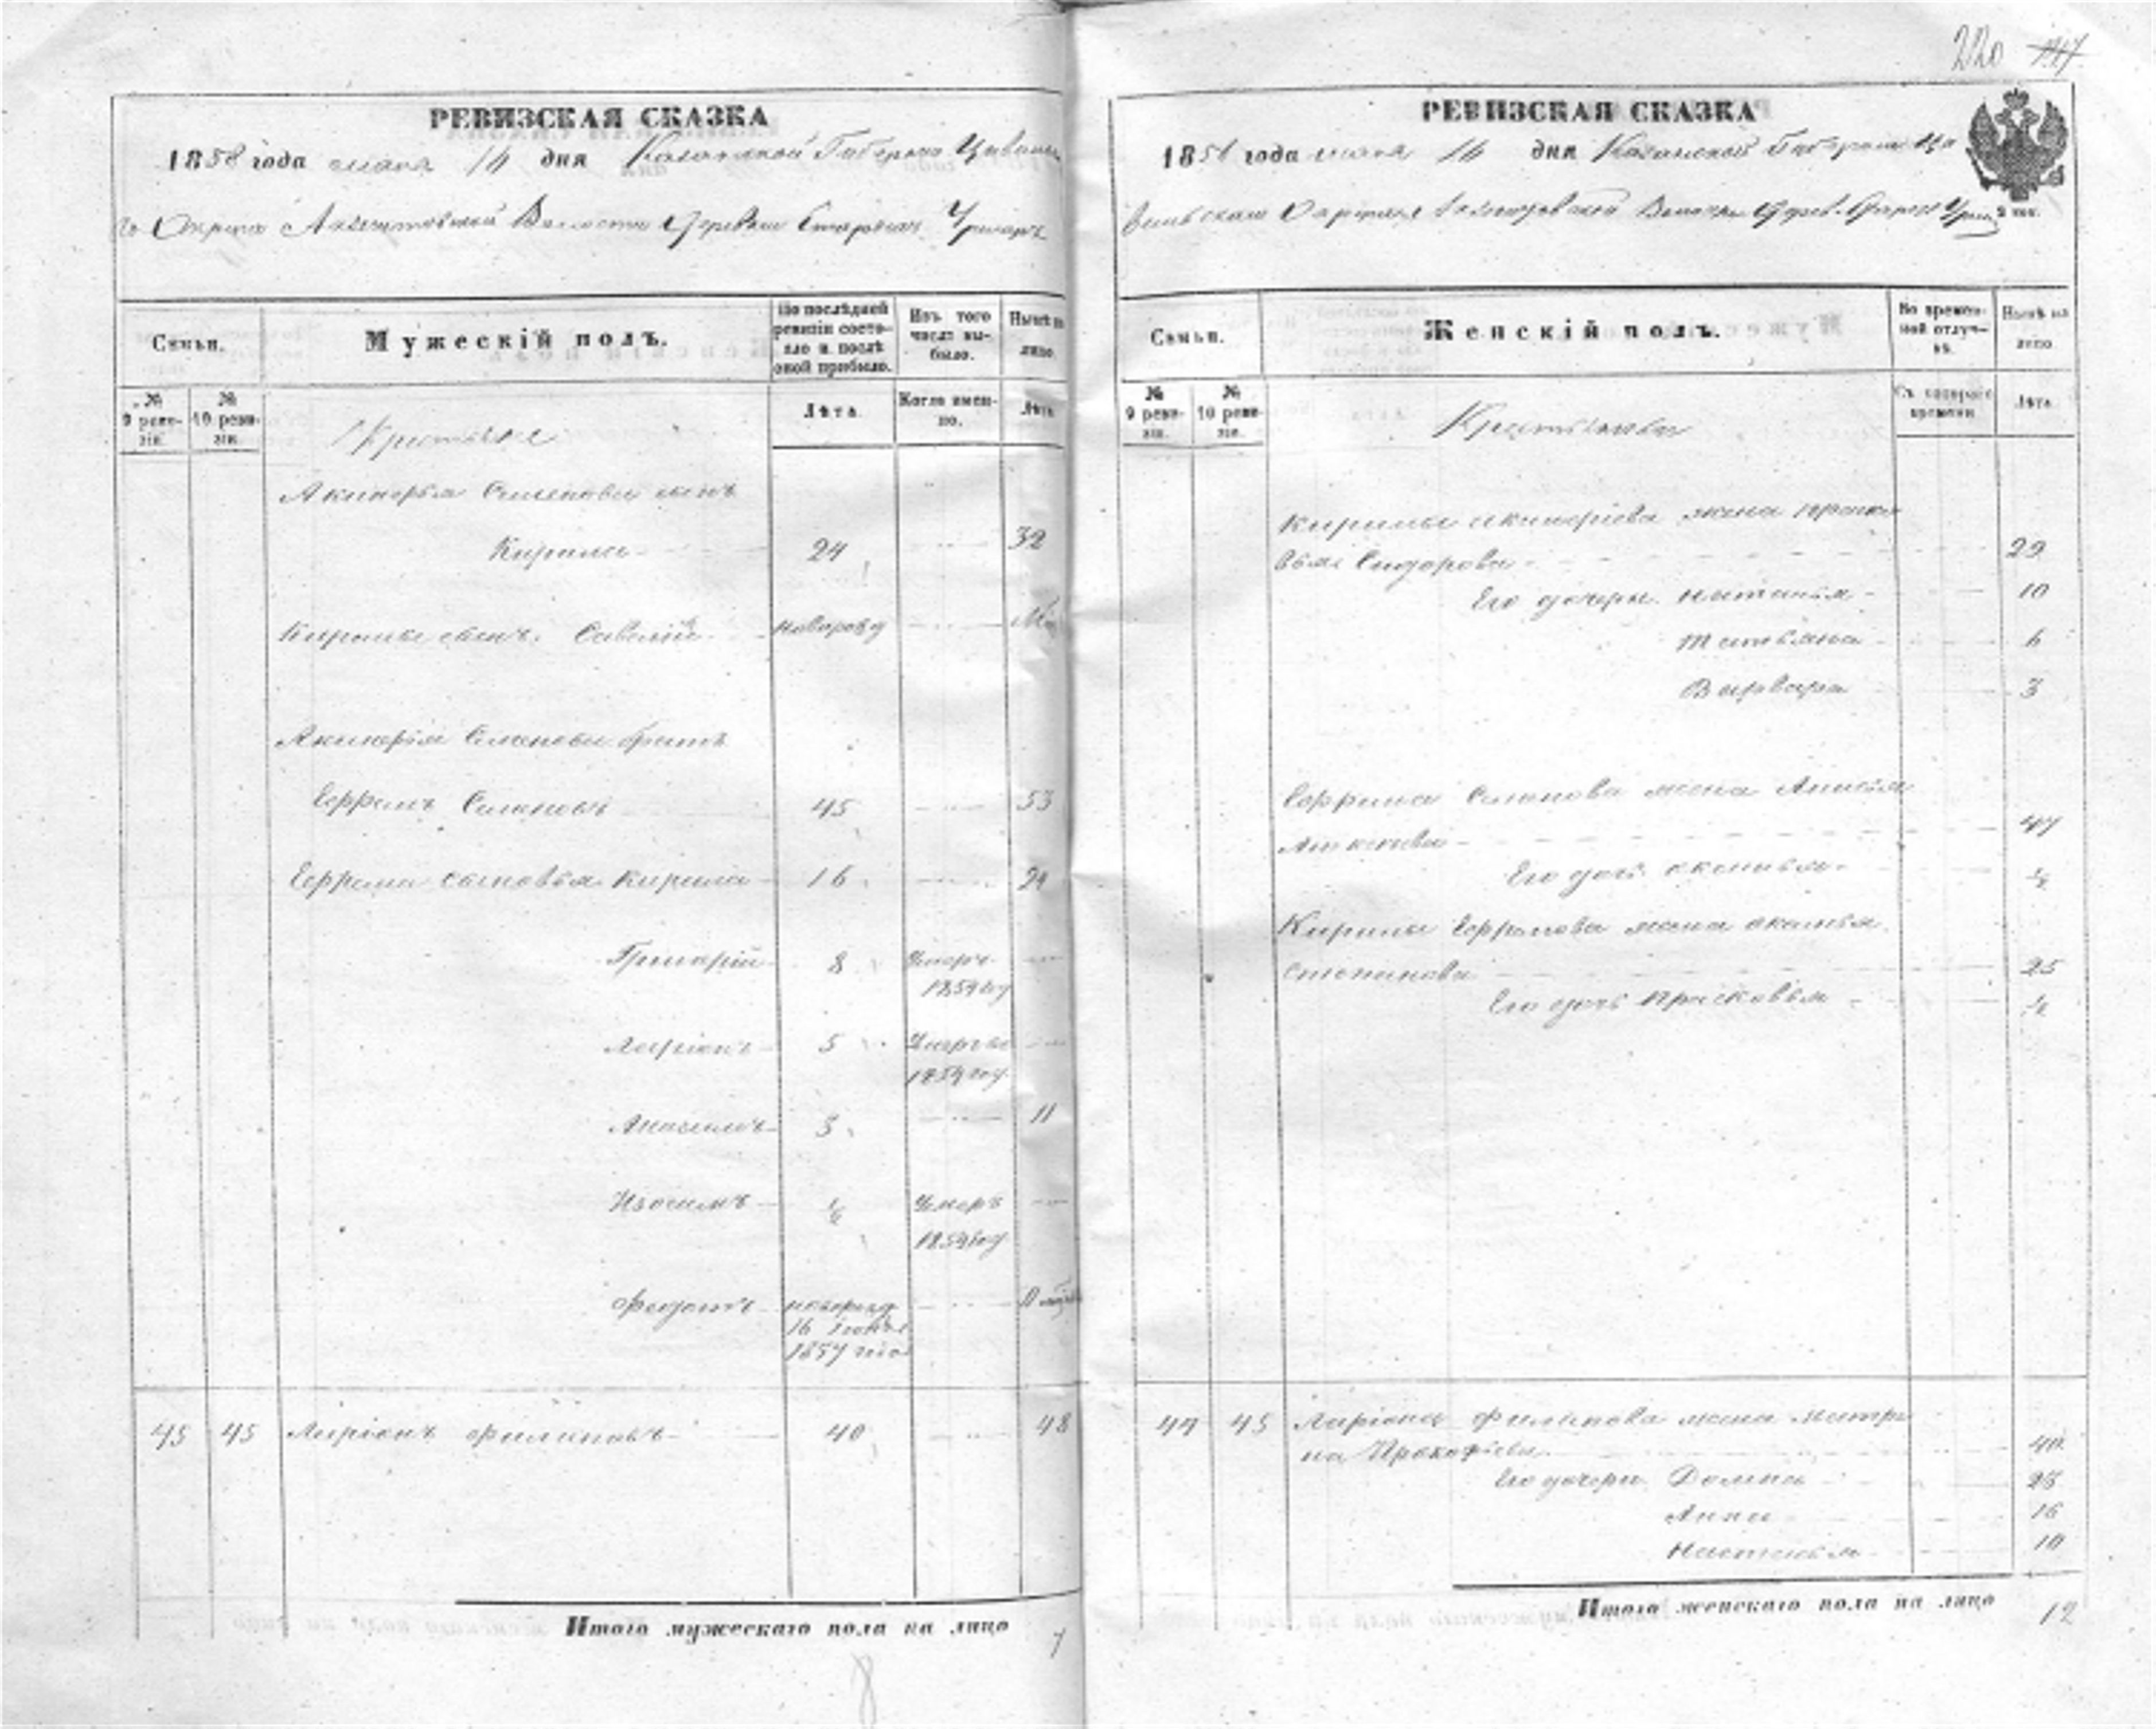 220
РЕВИЗСКАЯ СКАЗКА
1858 года мая 16 дня Казанской Губернии Цивиль
Округа Волости Деревни Старыхъ
Семьи.
Мужескій полъ.
По послѣдней ревизіи состояло и послѣ оной прибыло.
Изъ того числа выбыло.
Нынѣ на лицо
№ 9 ревизіи.
№ 10 ревизіи.
Лѣта
Когда именно.
Лѣта
Крестьяне
Семенова сынъ
Кирила 24 32
Кирилы сынъ Савелій новорожд
Семенова братъ
Ефремъ Семеновъ 45 53
Ефрема сыновья Кирила 16 24
Григорій 8 Умеръ
1854 году
Ларіонъ 5 Умеръ въ
1854 году
3 11
Изосимъ Умеръ
1854 году
Федотъ новорожд
16 Іюня
1857 года
45 45 Ларіонъ Филиповъ 40 48
Итого мужескаго пола на лицо 7
8
РЕВИЗСКАЯ СКАЗКА
1858 года мая 16 дня Казанской Губерніи Ци
вильскаго Округа Волости Дерев. Старыхъ
Семьи.
Женскій полъ.
Во временной отлучкѣ.
Нынѣ на лицо
№ 9 ревизіи.
№ 10 ревизіи.
Съ котораго времени
Лѣта
Крестьянки
Кирилы жена Праско
вья Сидорова 29
Его дочери Наталья 10
Татьяна 6
Варвара 3
Ефрема Семенова жена
47
Его дочь
Кирилы Ефремова жена
Степанова 25
Его дочь Прасковья
45 Ларіона Филипова жена Матре
на Прокофьева 40
Его дочери Домна 23
Анна 16
Настасья 10
Итого женскаго пола на лицо 12